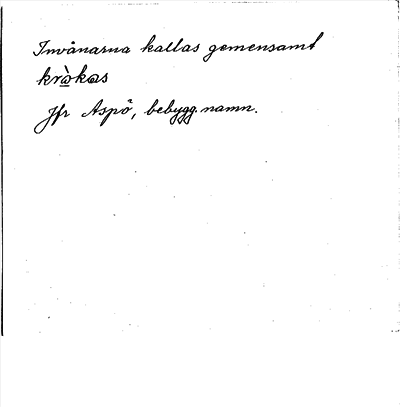 Invånarna kallas gemensamt
krɑ̀kɑs
Jfr Aspö, bebygg.namn.